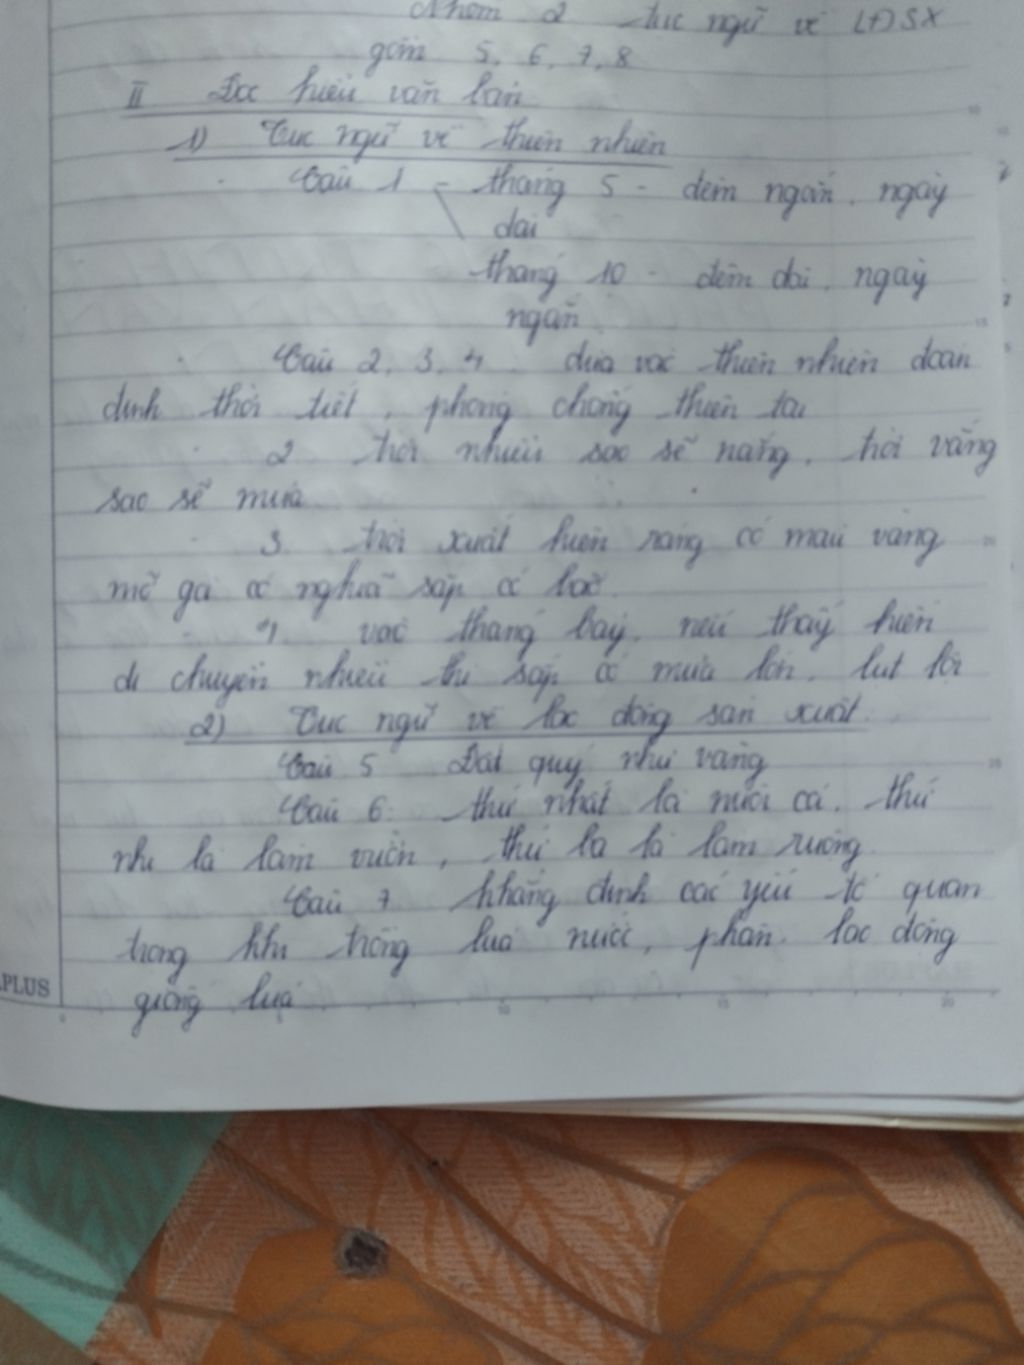 Nhóm 2 tục ngữ về LĐSX
gồm 5, 6, 7, 8
II Đọc hiểu văn bản
1) Tục ngữ về thiên nhiên
Câu 1 - tháng 5 - đêm ngắn, ngày
dài
tháng 10 - đêm dài, ngày
ngắn
Câu 2, 3, 4 dựa vào thiên nhiên đoán
định thời tiết, phòng chống thiên tai
2 trời nhiều sao sẽ nắng, trời vắng
sao sẽ mưa
3 trời xuất hiện ráng có màu vàng
mỡ gà có nghĩa sắp có bão.
4 vào tháng bảy, nếu thấy kiến
di chuyển nhiều thì sắp có mưa lớn, lụt lội
2) Tục ngữ về lao động sản xuất
Câu 5 Đất quý như vàng
Câu 6: thứ nhất là nuôi cá, thứ
nhì là làm vườn, thứ ba là làm ruộng
Câu 7 khẳng định các yếu tố quan
trọng khi trồng lúa nước, phân, lao động
giống lúa
PLUS